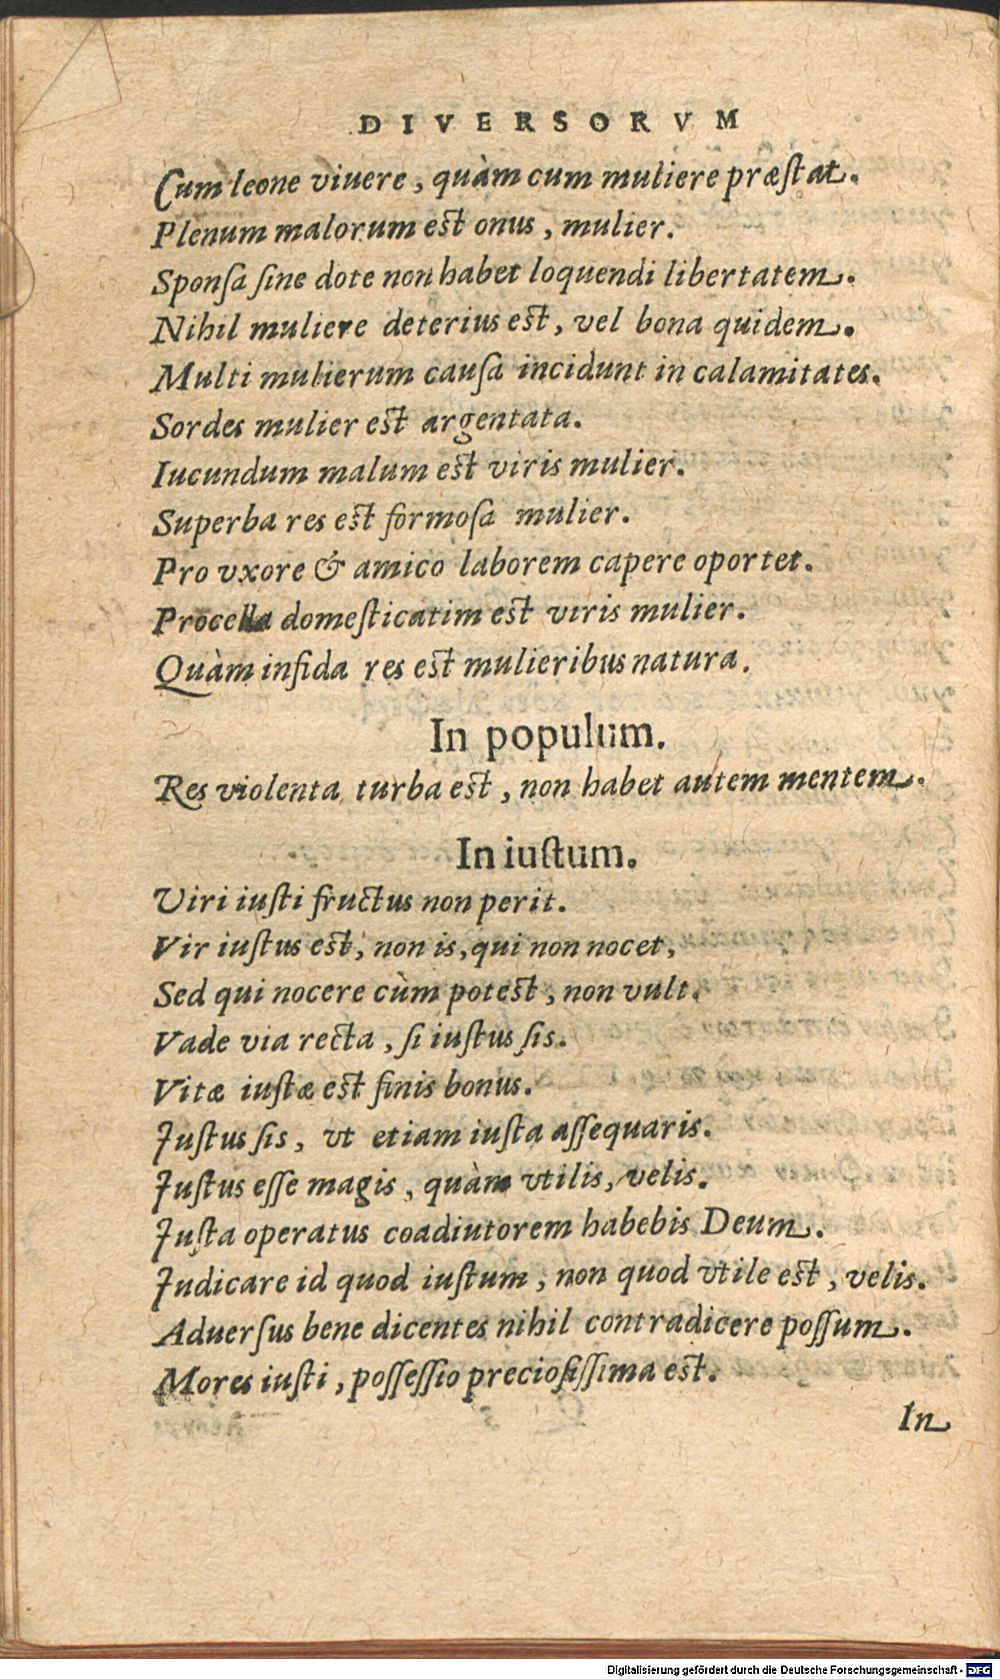 DIVERSORVM
Cum leone viuere, quàm cum muliere præſtat.
Plenum malorum est onus, mulier.
Sponſa ſine dote non habet loquendi libertatem.
Nihil muliere deterius est, vel bona quidem.
Multi mulierum cauſa incidunt in calamitates.
Sordes mulier est argentata.
Iucundum malum est viris mulier.
Superba res est formoſa mulier.
Pro vxore & amico laborem capere oportet.
Procella domeſticatim est viris mulier.
Quàm infida res est mulieribus natura.
In populum.
Res violenta turba est, non habet autem mentem.
In iuſtum.
Viri iuſti fructus non perit.
Vir iuſtus est, non is, qui non nocet,
Sed qui nocere cùm potest, non vult.
Vade via recta, ſi iuſtus ſis.
Vitæ iuſtæ est finis bonus.
Juſtus ſis, vt etiam iuſta aſſequaris.
Juſtus eſſe magis, quàm vtilis, velis.
Juſta operatus coadiutorem habebis Deum.
Judicare id quod iuſtum, non quod vtile est, velis.
Aduerſus bene dicentes nihil contradicere poſſum.
Mores iuſti, poſſeſſio precioſiſſima est.
In
Digitalisierung gefördert durch die Deutsche Forschungsgemeinschaft - DFG